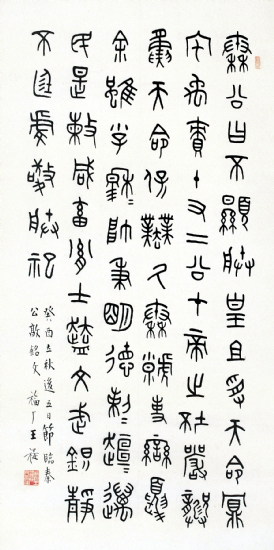 秦公曰不顯朕皇且受天命鼏
宅禹責十又二公才帝之坏嚴龏
夤天命保業氒秦虩事蠻夏
余雖小子穆=帥秉明德剌=趄=邁
民是敕咸畜胤士盍=文武鎮靜
不廷虔敬朕祀
癸酉立秋後五日節臨秦
公敦銘文 福厂王禔